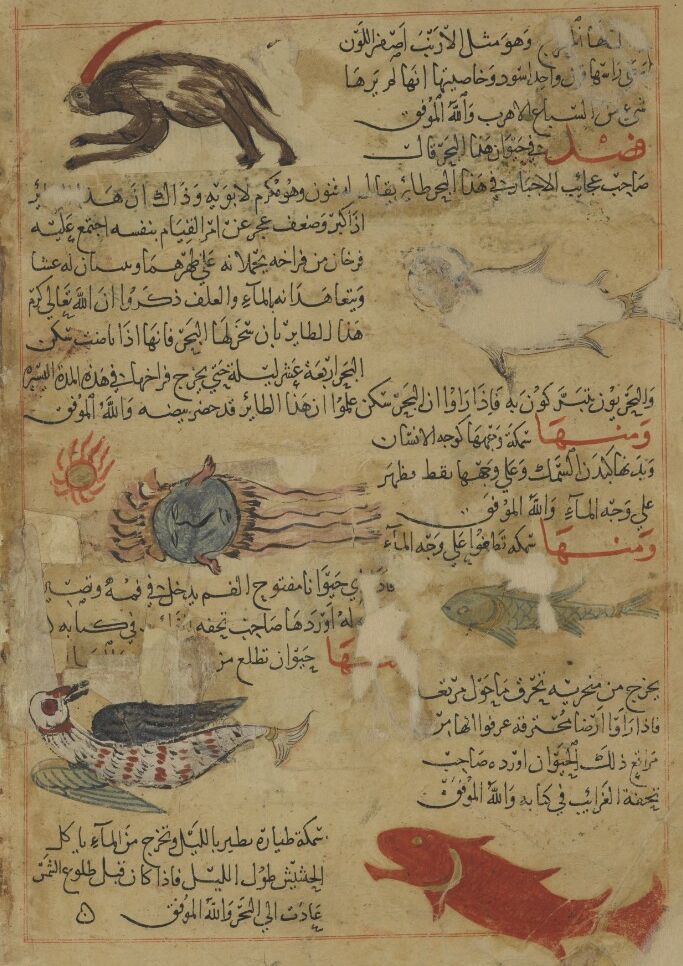 وهو مثل الارنب اصفر اللون
راسها قرن واحد اسود وخاصيتها انها لم يرها
شي من السباع الا هرب والله الموفق
فصل في حيوان هذا البحر قال
صاحب عجايب الاخبار في هذا البحر طائر يقال له وهو مكرم لابويه وذاك ان هذا الطائر
اذا كبر وضعف عجز عن امر القيام بنفسه اجتمع عليه
فرخان من فراخه يحملانه علي ظهرهما ويبنيان له عشا
ويتعاهدانه بالماء والعلف ذكروا ان الله تعالي كرم
هذا الطاير بان سخر لها البحر فانها اذا باضت سكن
البحر اربعة عشر ليلة حتي يخرج فراخها في هذه المدة اليسيرة
والبحريون يتبركون به فاذا راوا ان البحر سكن علموا ان هذا الطائر قد حضر بيضه والله الموفق
ومنها سمكة وجهها كوجه الانسان
وبدنها كبدن السمك وعلي وجهها نقط يظهر
علي وجه الماء والله الموفق
ومنها سمكه تطفوا علي وجه الماء
حيوانا مفتوح الفم يدخل في فيه
له اوردها صاحب تحفه في كتابه
منها حيوان تطلع من
يخرج من منخريه يحرق ما حول مرتعه
فاذا راوا ارضا محترقه عرفوا انها من
مراتع ذلك الحيوان اورده صاحب
تحفة الغرايب في كتابه والله الموفق
سمكة طيارة يطير بالليل وتخرج من الماء ياكل
الحشيش طول الليل فاذا كان قبل طلوع الشمس
عادت الي البحر والله الموفق